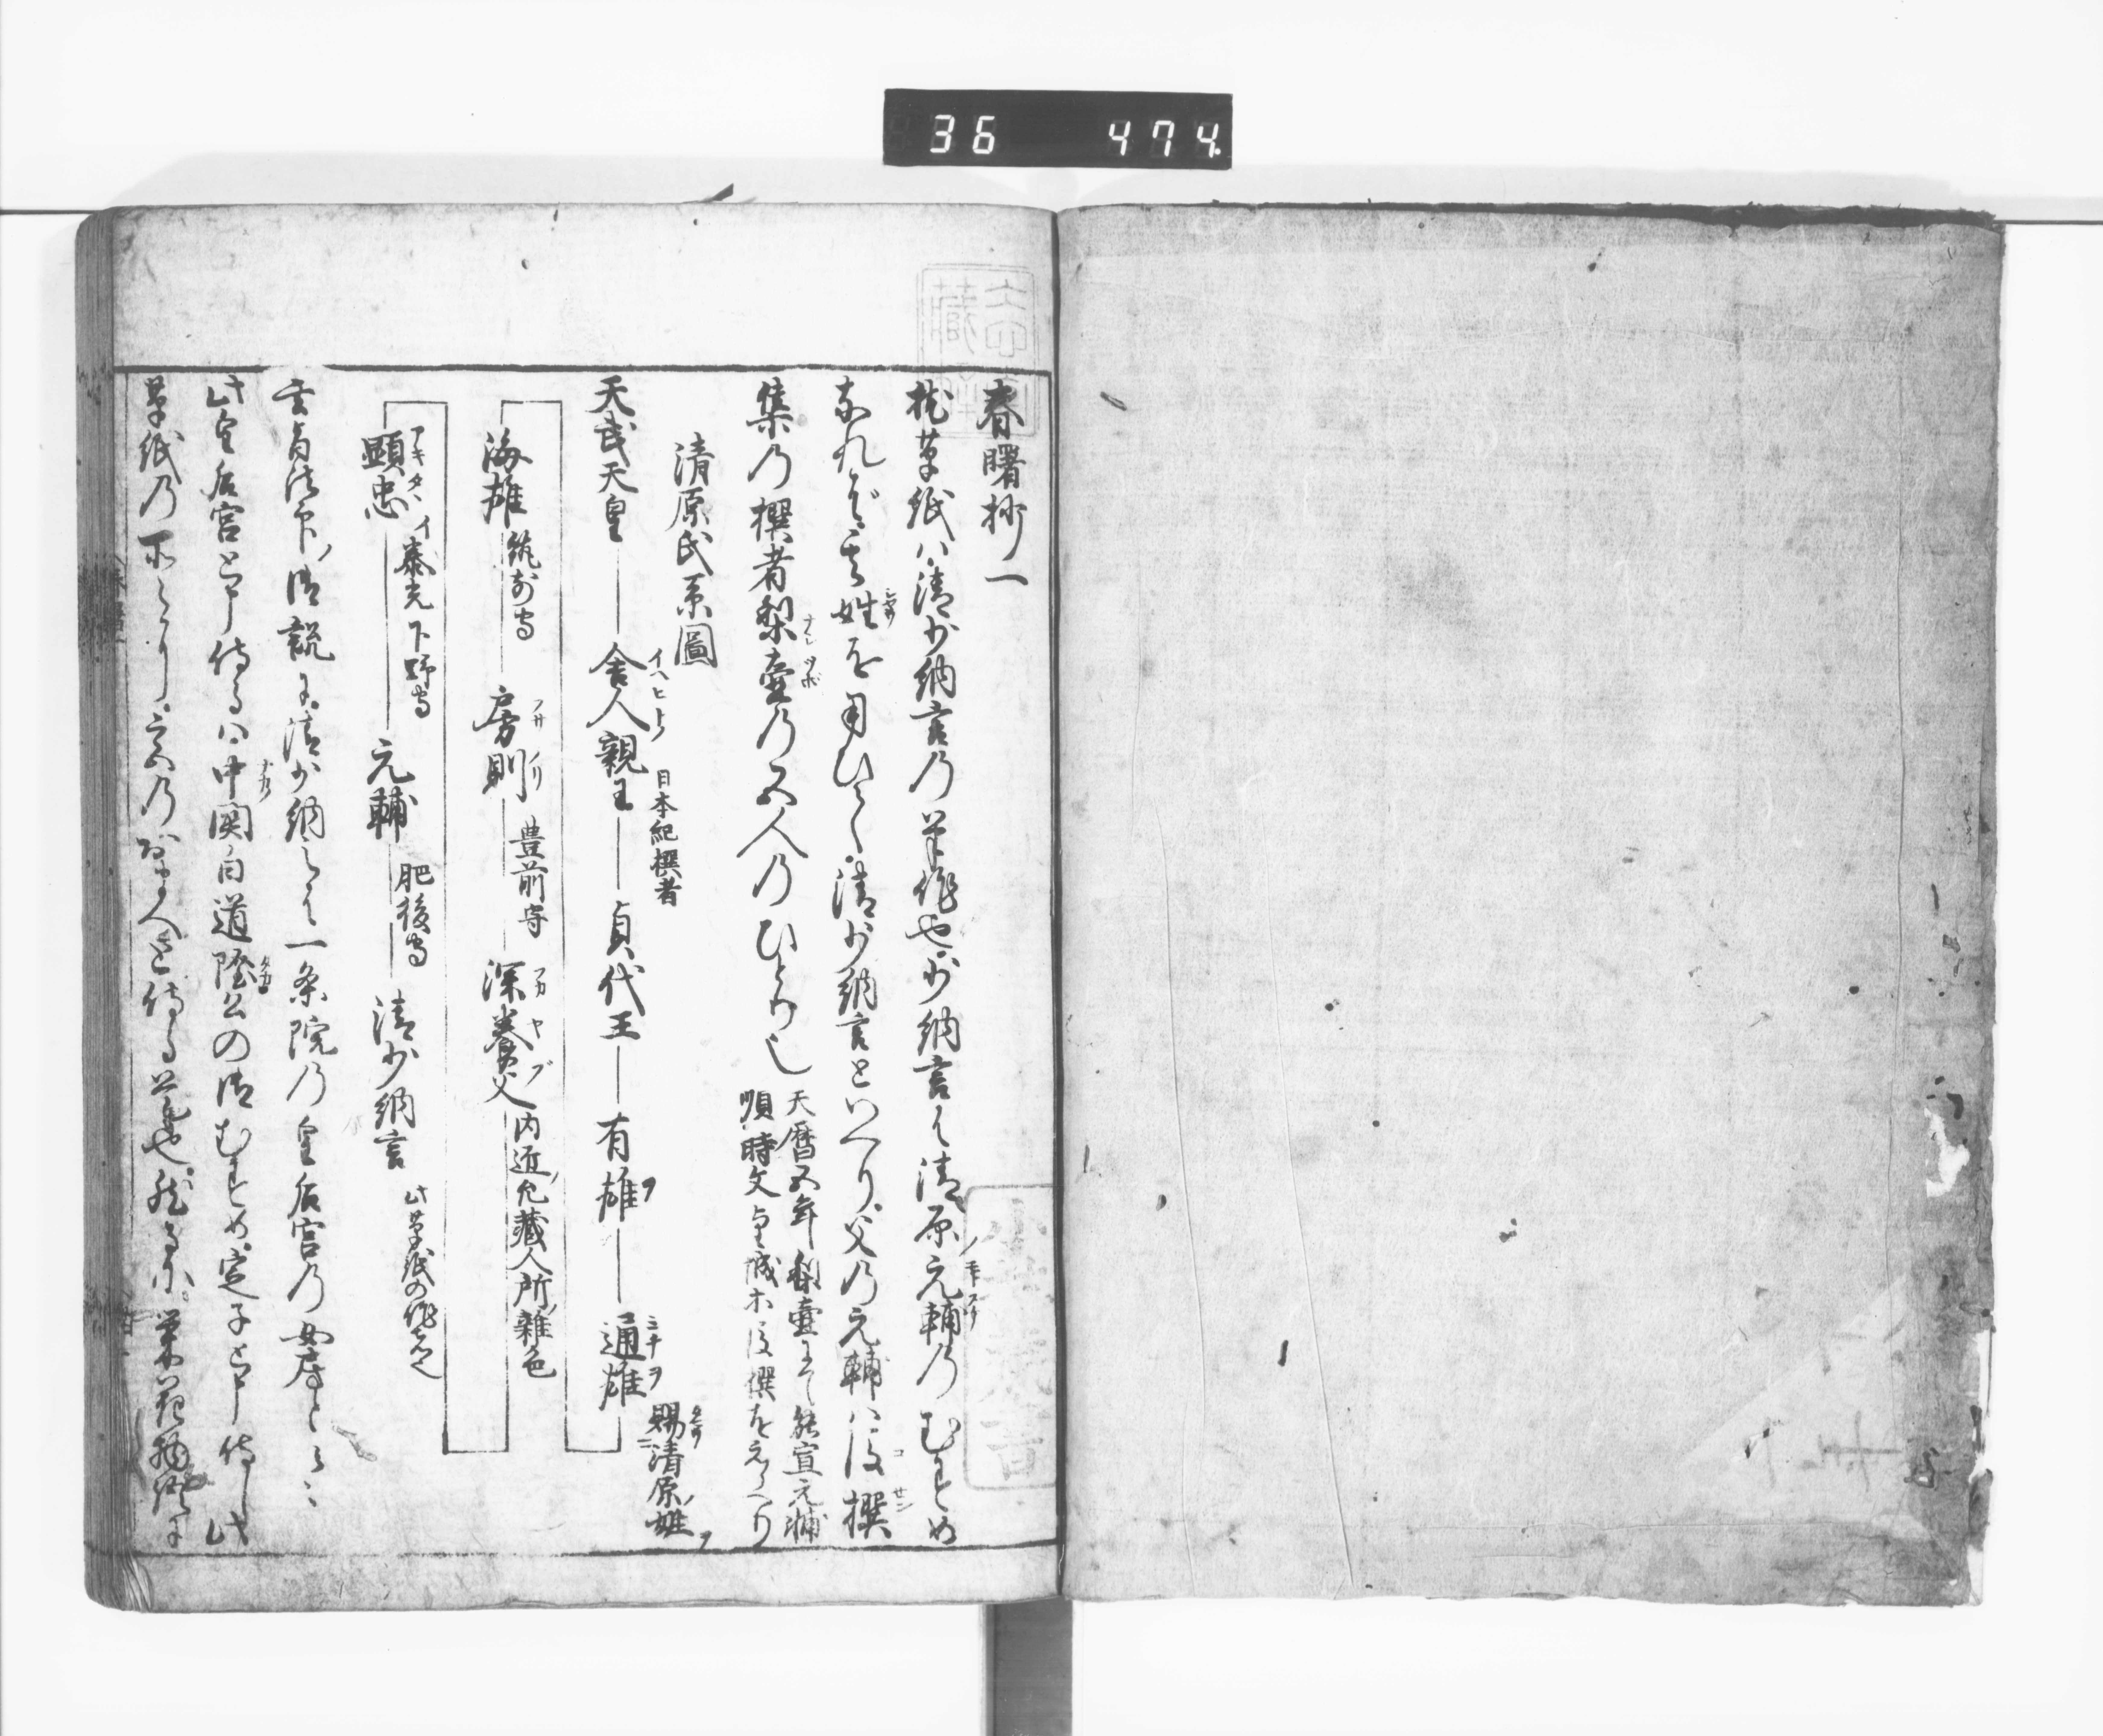 36 474
春曙抄一
枕草紙ハ清少納言乃筆作也少納言ハ清原元輔乃むすめ
なれバ其姓を用ひて清少納言といへり父乃元輔ハ後撰
集乃撰者梨壷乃五人乃ひとり也
天暦五年梨壷にて能宣元輔
順時文望城等後撰をえらべり
清原氏系圖
天武天皇 舎人親王 日本紀撰者 貞代王 有雄 通雄 賜清原姓
海雄 筑前守 房則 豊前守 深養父 内匠允蔵人所雑色
顕忠 イ泰光下野守 元輔 肥後守 清少納言 此草紙の作者也
玄旨法印御説に清少納言ハ一条院乃皇后宮乃女房と云々
此皇后宮と申侍るハ中関白道隆公の御むすめ定子と申侍し此
草紙乃所々に